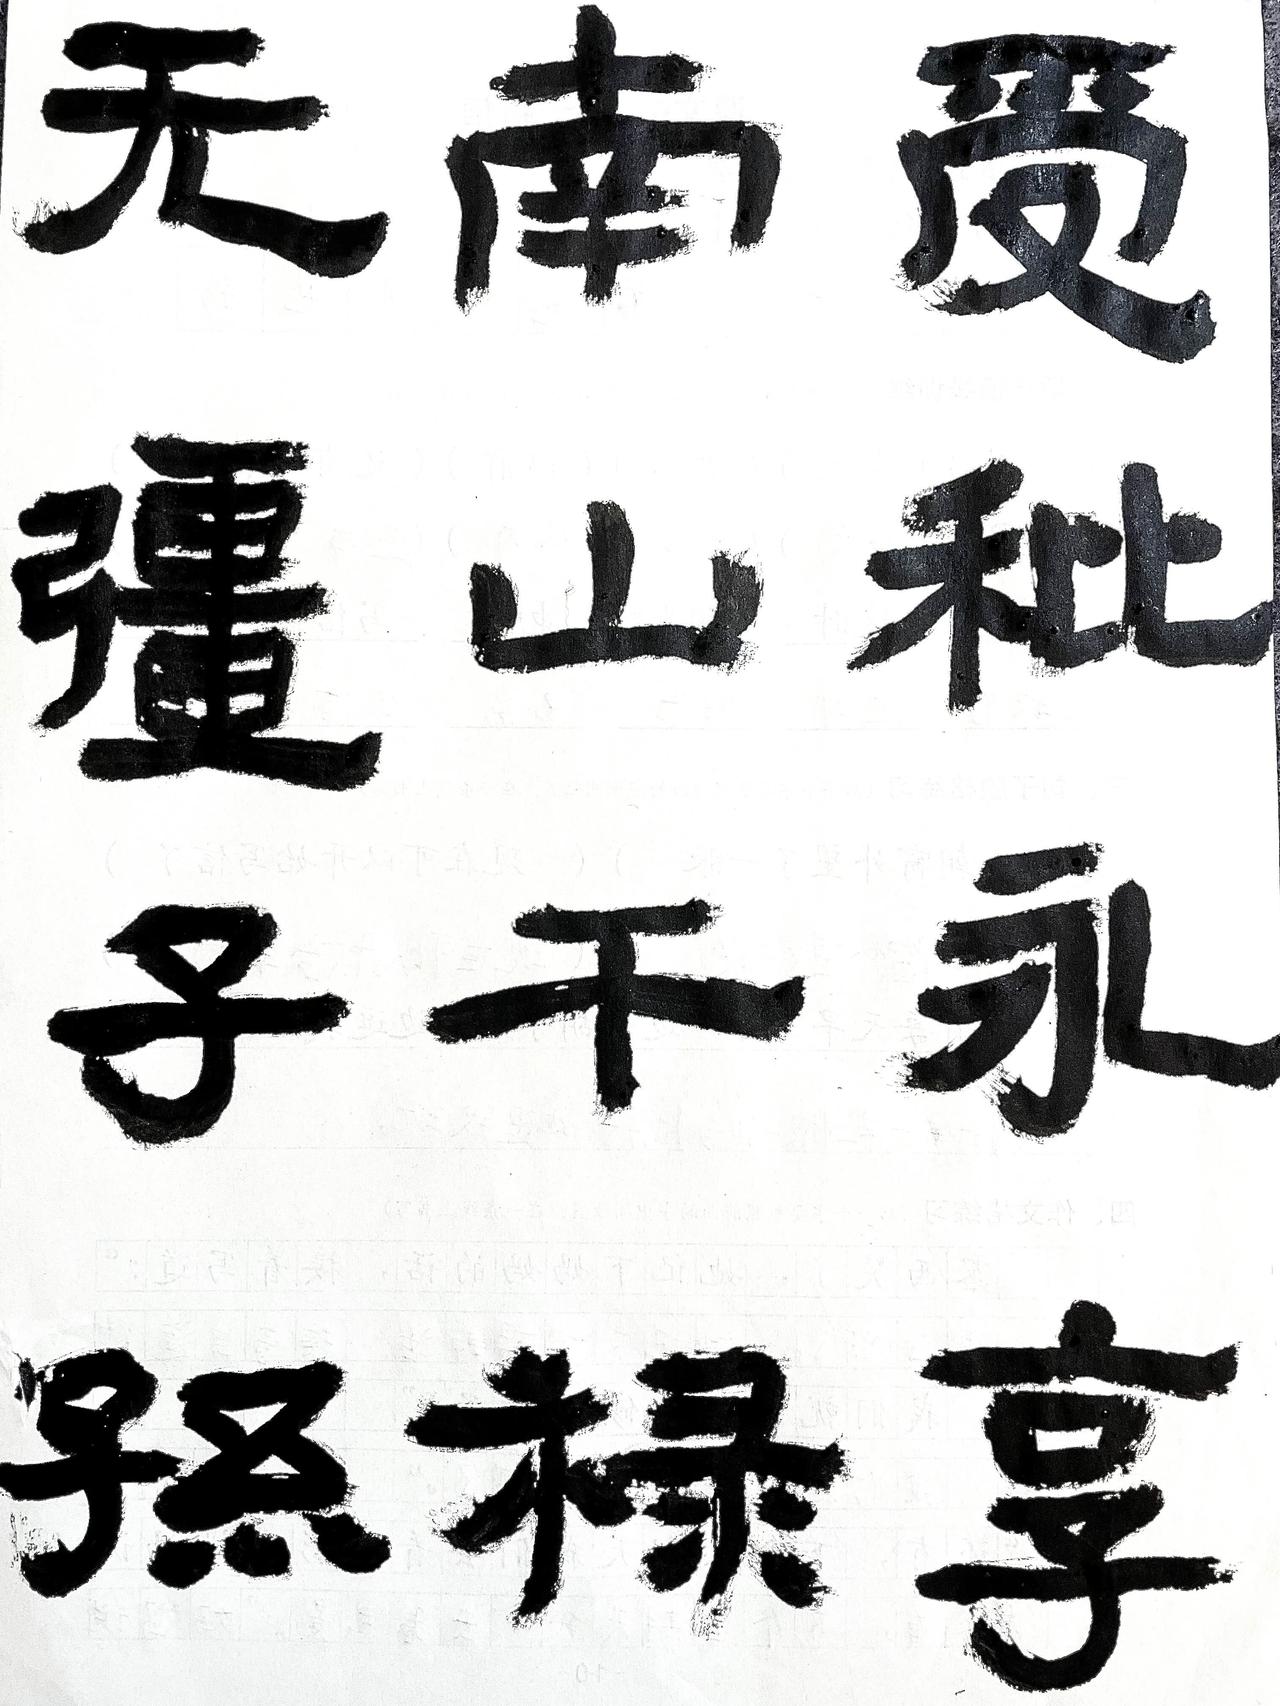 受秕永享
南山干禄
无彊子孫